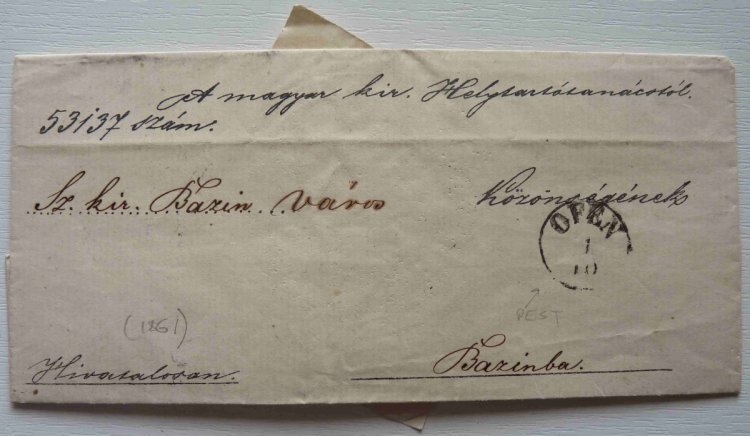 A magyar kir. Helytartótanácstól.
53137 szám.
Sz. kir. Bazin város Közönségének
OFEN
1
10
PEST
(1861)
Hivatalosan.
Bazinba.